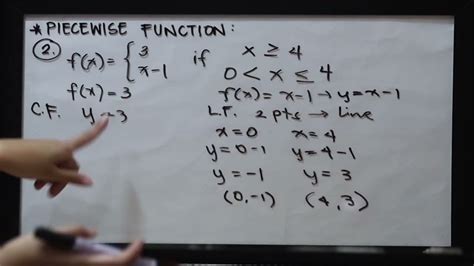 * PIECEWISE FUNCTION:
2. f(x) = { 3 if x ≥ 4
x-1 0 < x ≤ 4
f(x) = 3 f(x) = x-1 → y = x-1
C.F. y = 3 L.F. 2 pts → Line
x = 0 x = 4
y = 0-1 y = 4-1
y = -1 y = 3
(0,-1) (4,3)